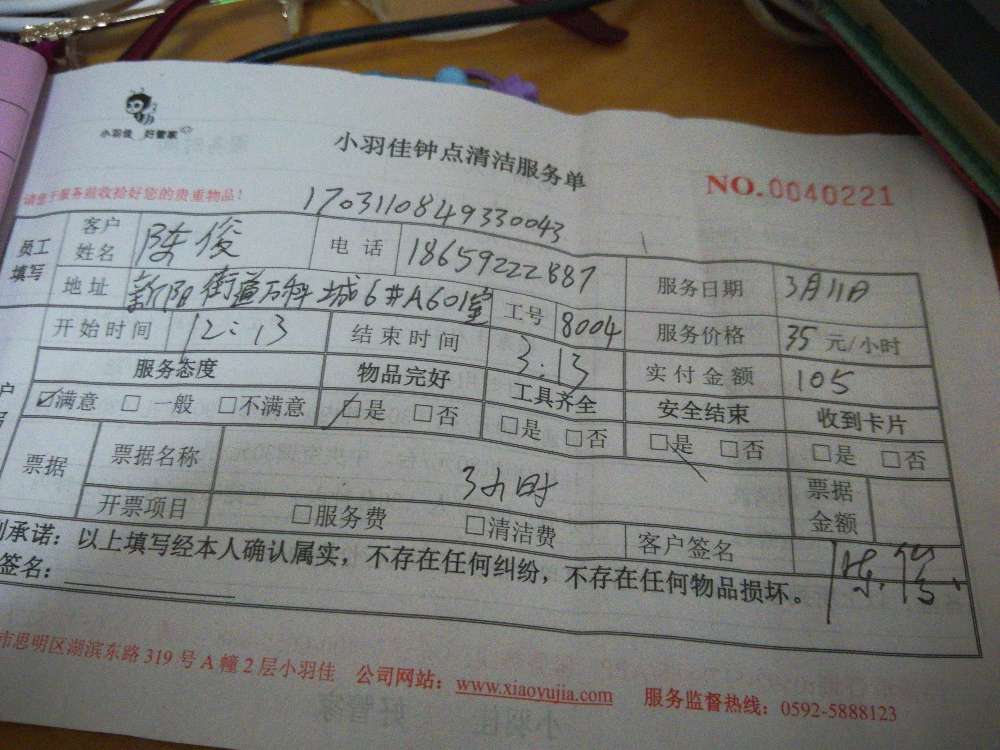 小羽佳 好管家
小羽佳钟点清洁服务单
NO.0040221
请您于服务前收拾好您的贵重物品！
1703110849330043
员工填写 客户姓名 陈俊 电话 18659222887 服务日期 3月11日
地址 新阳街道万科城6#A601室 工号 8004 服务价格 35元/小时
开始时间 12:13 结束时间 3:13 实付金额 105
服务态度 物品完好 工具齐全 安全结束 收到卡片
☑满意 □一般 □不满意 ☑是 □否 □是 □否 ☑是 □否 □是 □否
票据 票据名称 3小时 票据金额
开票项目 □服务费 □清洁费 客户签名 陈俊
承诺：以上填写经本人确认属实，不存在任何纠纷，不存在任何物品损坏。
签名：
市思明区湖滨东路319号A幢2层小羽佳 公司网站：www.xiaoyujia.com 服务监督热线：0592-5888123